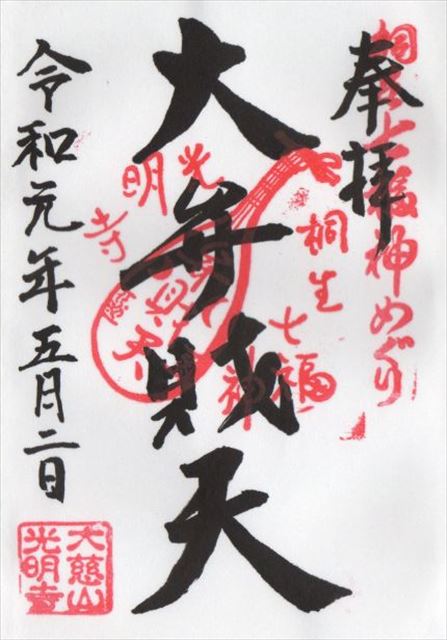 奉拝
桐生七福神めぐり
大弁財天
光明寺
桐生七福神
令和元年五月二日
大慈山
光明寺